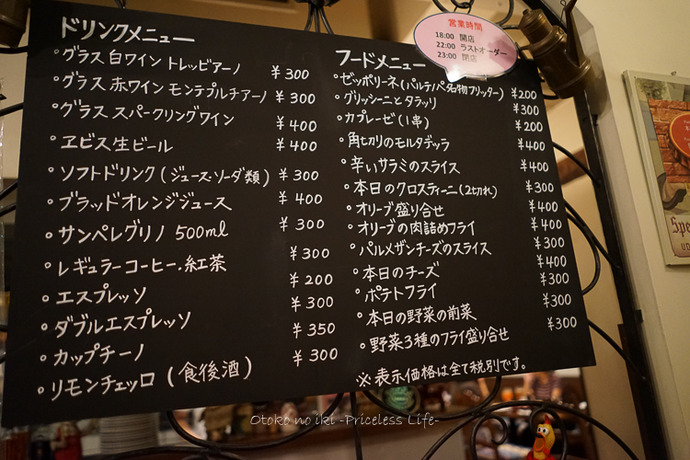 ドリンクメニュー
・グラス 白ワイン トレッビアーノ ¥300
・グラス 赤ワイン モンテプルチアーノ ¥300
・グラス スパークリングワイン ¥400
・ヱビス生ビール ¥400
・ソフトドリンク(ジュース・ソーダ類) ¥300
・ブラッドオレンジジュース ¥400
・サンペレグリノ 500ml ¥300
・レギュラーコーヒー・紅茶 ¥300
・エスプレッソ ¥200
・ダブルエスプレッソ ¥300
・カップチーノ ¥350
・リモンチェッロ(食後酒) ¥300
フードメニュー
・ゼッポリーネ(パルテノペ名物フリッター) ¥200
・グリッシーニとタラッリ ¥300
・カプレーゼ(1串) ¥200
・角切りのモルタデッラ ¥400
・辛いサラミのスライス ¥400
・本日のクロスティーニ(2切れ) ¥300
・オリーブ盛り合せ ¥400
・オリーブの肉詰めフライ ¥400
・パルメザンチーズのスライス ¥300
・本日のチーズ ¥400
・ポテトフライ ¥300
・本日の野菜の前菜 ¥300
・野菜3種のフライ盛り合せ ¥300
※表示価格は全て税別です。
営業時間
18:00 開店
22:00 ラストオーダー
23:00 閉店
Otoko no iki -Priceless Life-